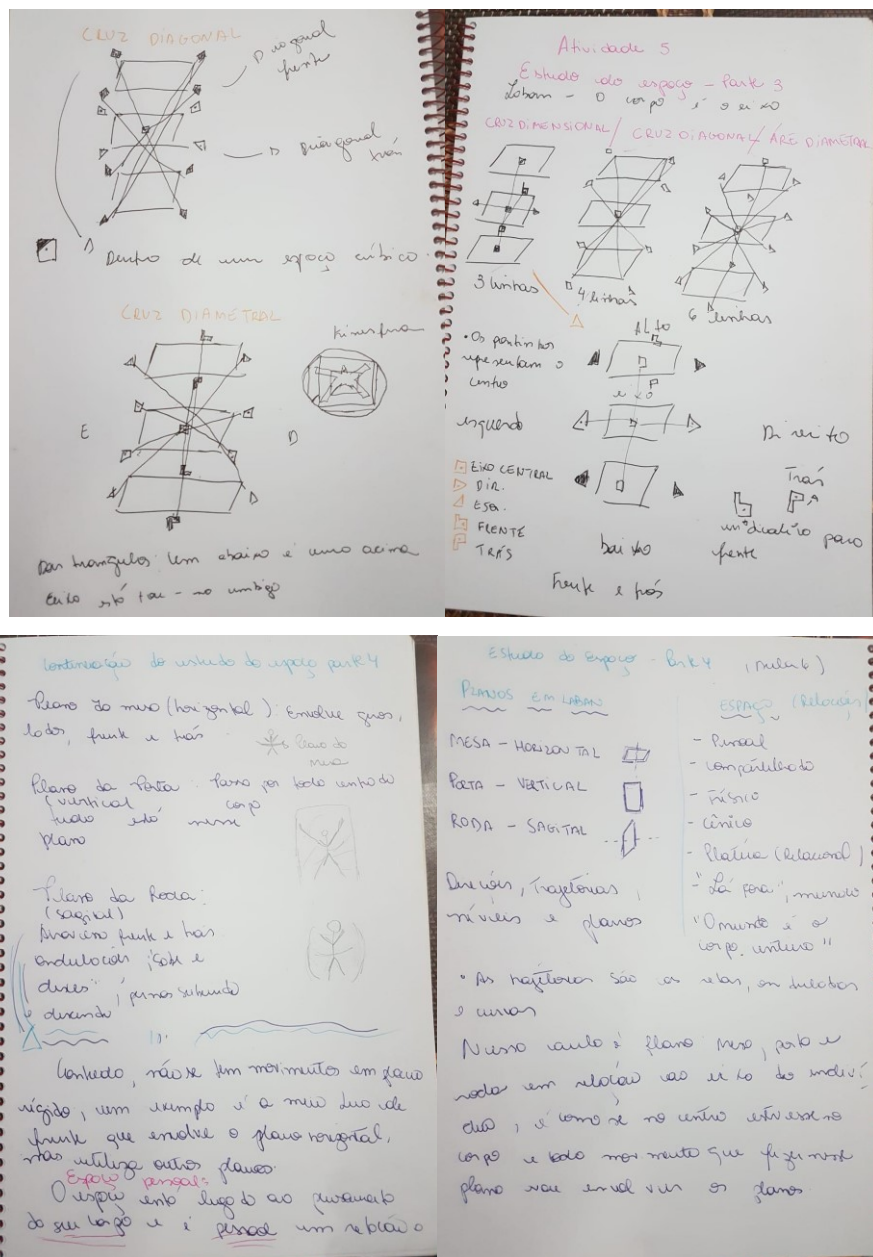 CRUZ DIAGONAL
Diagonal
frente
Diagonal
trás
Dentro de um espaço cúbico.
CRUZ DIAMETRAL
Kinesfera
E
D
Dos triangulos um abaixo e uma acima
Eixo está no umbigo
Atividade 5
Estudo do espaço - Parte 3
Laban - O corpo é o eixo
CRUZ DIMENSIONAL / CRUZ DIAGONAL / DIAMETRAL
3 linhas
4 linhas
6 linhas
Alto
• Os pontinhos
representam o
centro
eixo
esquerdo
Direito
EIXO CENTRAL
DIR.
ESQ.
FRENTE
TRÁS
Trás
indicativo para
frente
baixo
Frente e trás
Continuação do estudo do espaço parte 4
Plano da mesa (horizontal): Envolve giros,
lados, frente e trás
Plano da
mesa
Plano da Porta. Passa por todo centro do
(vertical
corpo
tudo está nesse
plano
Plano da Roda:
(sagital)
frente e trás
ondulações, "sobe e
desce", pernas subindo
e descendo
Contudo, não se tem movimentos em plano
rígido, um exemplo é a meia lua de
frente que envolve o plano horizontal,
mas utiliza outros planos.
Espaço pessoal:
O espaço está ligado ao
do seu corpo e é pessoal em relação o
Estudo do Espaço - Parte 4 (Aula 6)
PLANOS EM LABAN
ESPAÇO (Relações)
MESA - HORIZONTAL
PORTA - VERTICAL
RODA - SAGITAL
- Pessoal
- compartilhado
- Físico
- Cênico
- Platéia (Relacional)
- "Lá fora", mundo
"O mundo é o
corpo inteiro"
Direções, Trajetórias,
níveis e planos
• As trajetórias são as retas, em
e curvas
Nessa aula: plano mesa, porta e
roda em relação ao eixo do indiví
duo, é como se no centro estivesse no
corpo e todo movimento que fizer nesse
plano vai envolver os planos.